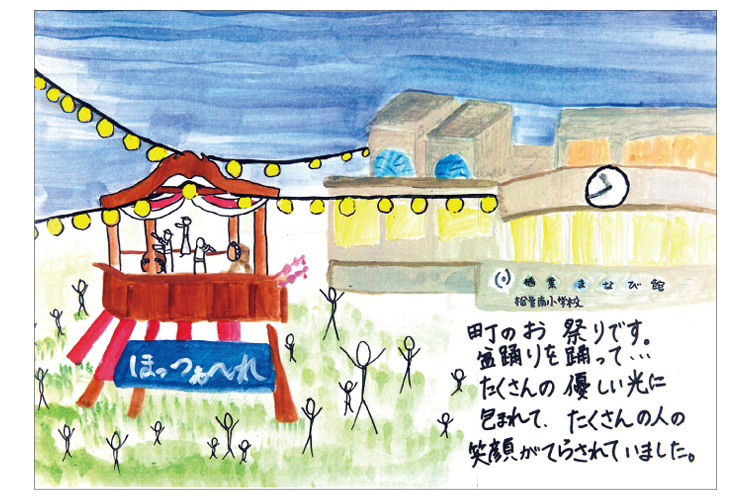 ほっつぁへれ
楢葉まなび館
楢葉南小学校
町のお祭りです。
盆踊りを踊って…
たくさんの優しい光に
包まれて、たくさんの人の
笑顔がてらされていました。